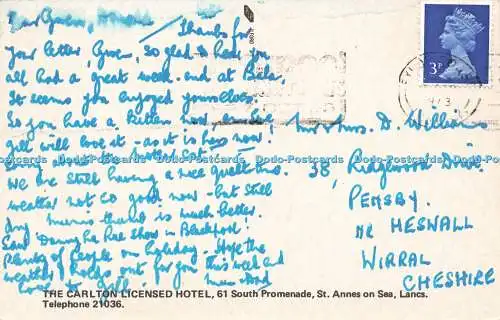 Dear Gwen,
Thanks for
your letter, Gwen, so glad to hear you
all had a great week-end at Bala,
It seems you enjoyed yourselves.
So you have a kitten now
Gill will love it - as it is hers now
We are still having a nice quiet time.
weather not so good now - but still
dry mum's is much better.
Saw Danny La Rue Show in Blackpool.
Plenty of people on holiday. Hope the
weather holds out for you this week end
love to Gill. Mum
Mr & Mrs. D. Williams
38, Ridgewood Drive.
PENSBY.
NR HESWALL
WIRRAL
CHESHIRE
3P
THE CARLTON LICENSED HOTEL, 61 South Promenade, St. Annes on Sea, Lancs.
Telephone 21036.
Dodo-Postcards Dodo-Postcards Dodo-Postcards Dodo-Postcards